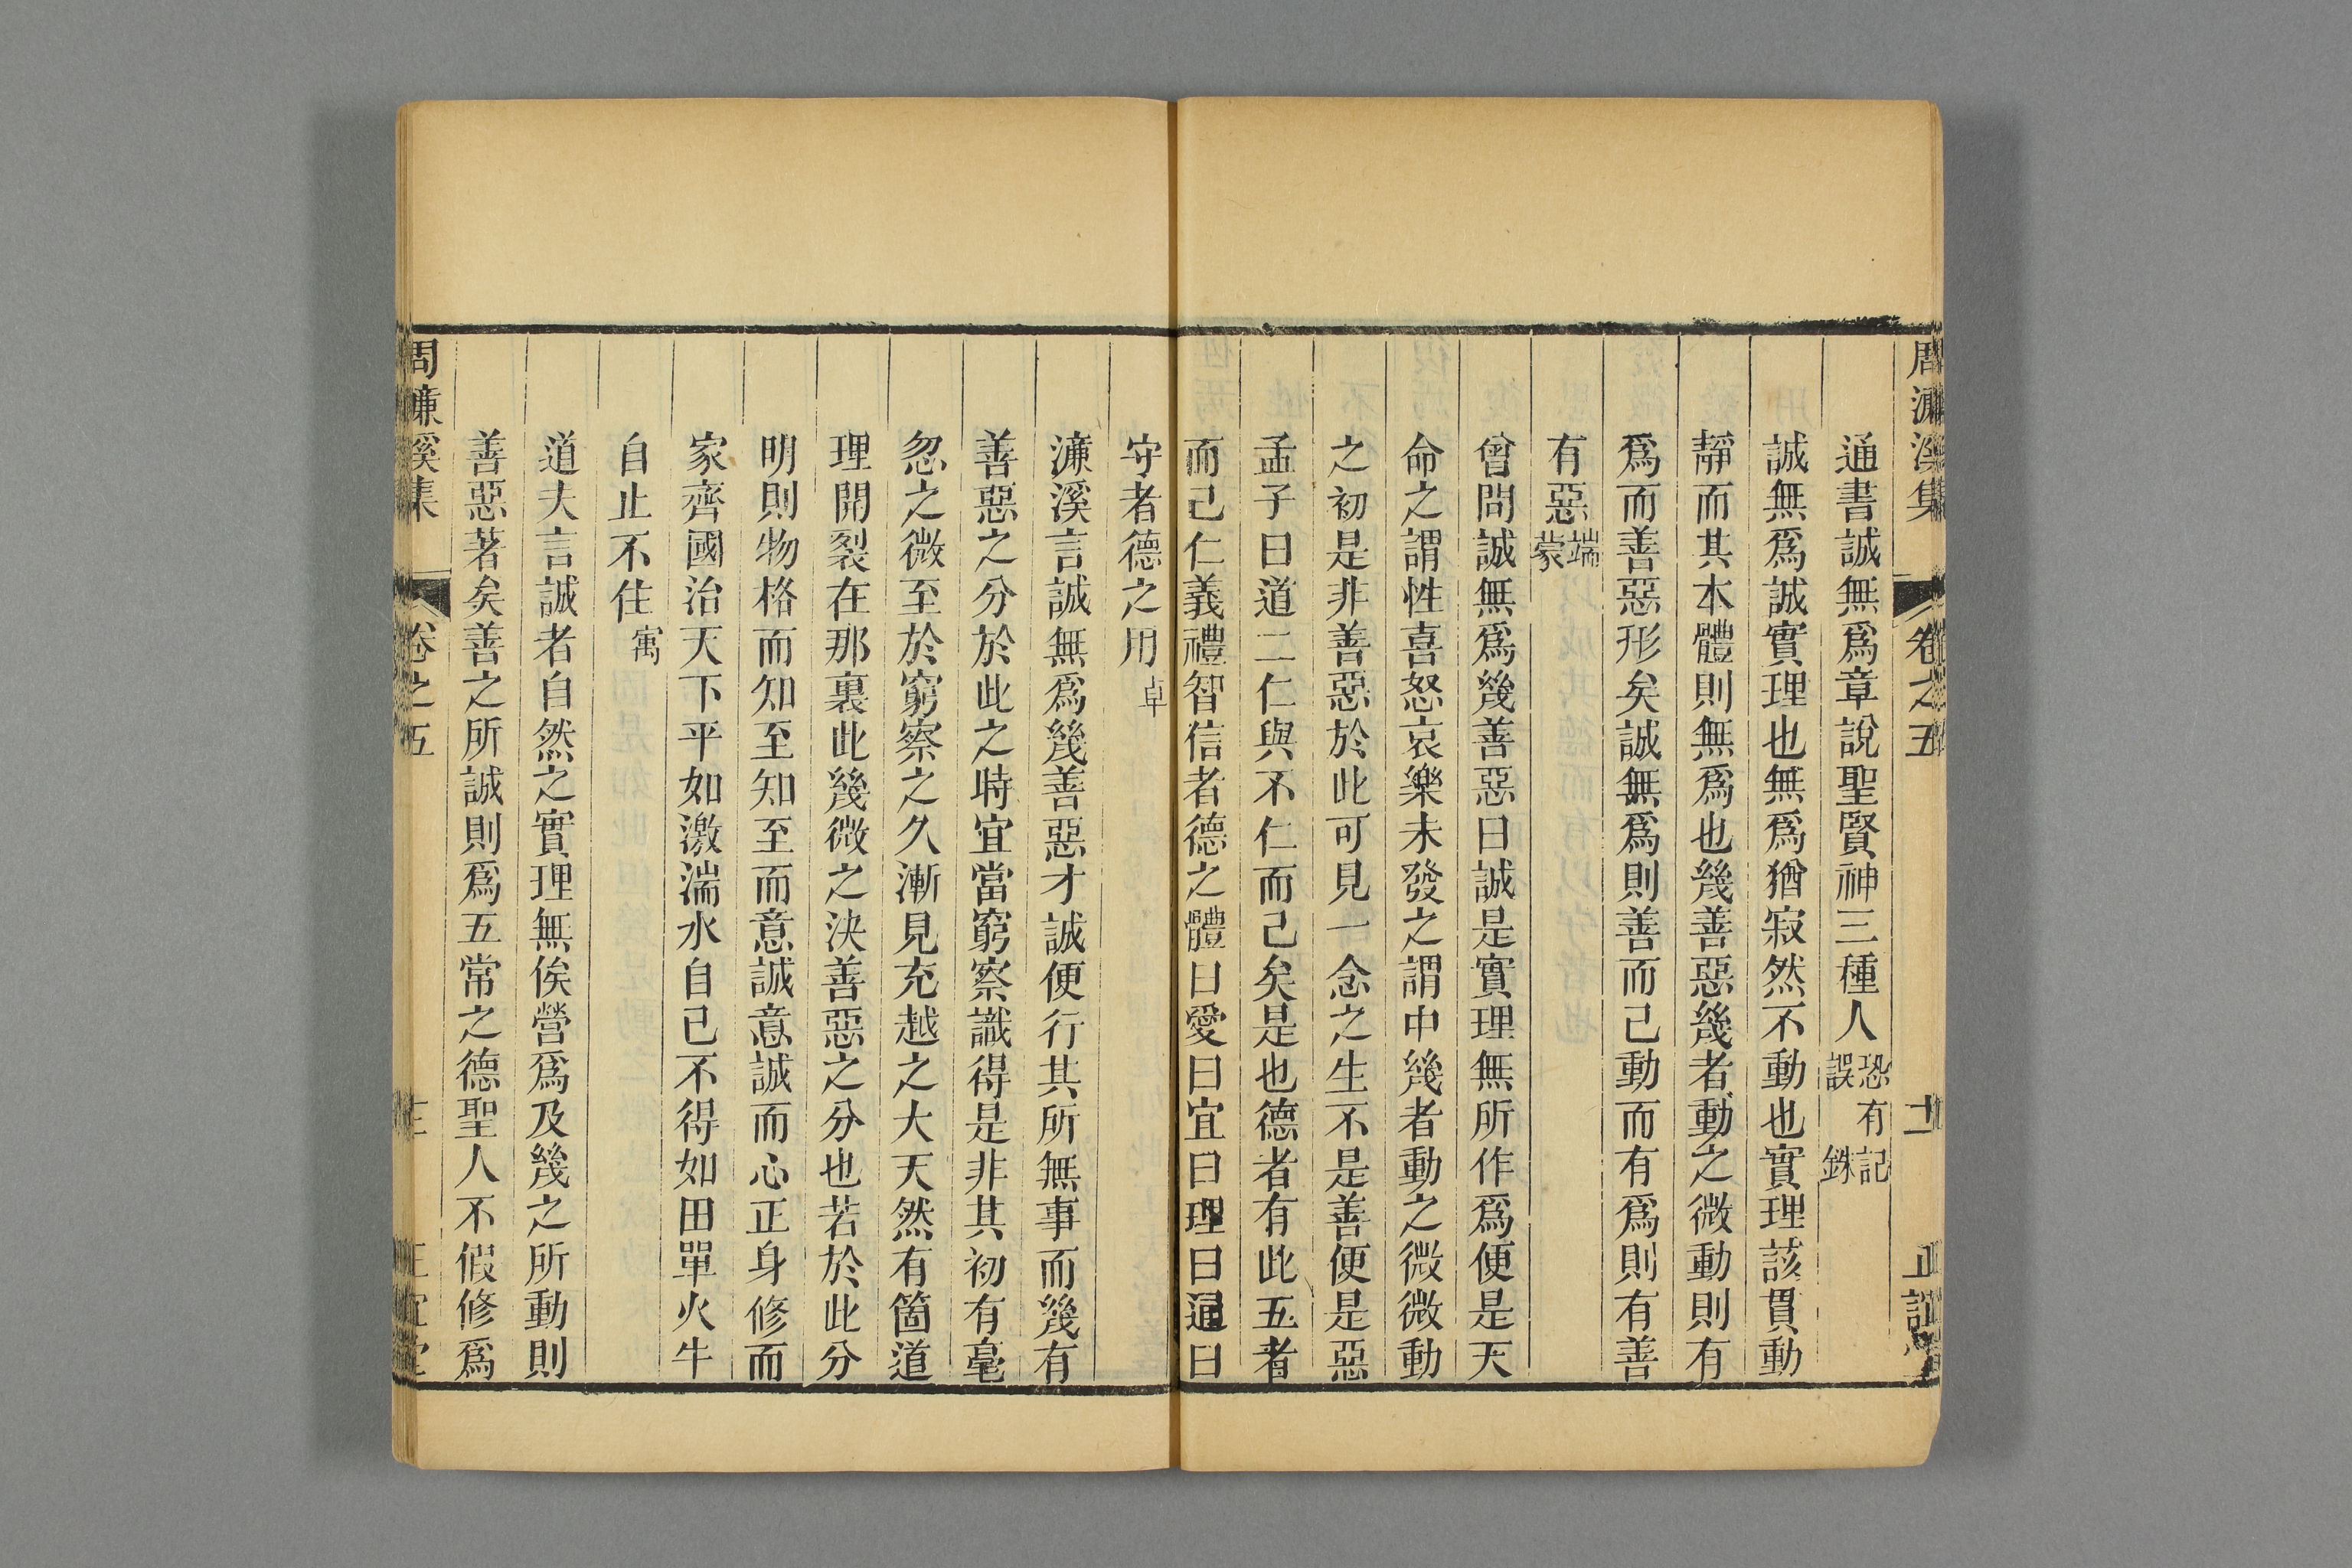 通書誠無爲章說聖賢神三種人恐有記誤 銖
誠無爲誠實理也無爲猶寂然不動也實理該貫動
靜而其本體則無爲也幾善惡幾者動之微動則有
爲而善惡形矣誠無爲則善而已動而有爲則有善
有惡端蒙
曾問誠無爲幾善惡曰誠是實理無所作爲便是天
命之謂性喜怒哀樂未發之謂中幾者動之微微動
之初是非善惡於此可見一念之生不是善便是惡
孟子曰道二仁與不仁而已矣是也德者有此五者
而已仁義禮智信者德之體曰愛曰宜曰理曰通曰
守者德之用卓
濂溪言誠無爲幾善惡才誠便行其所無事而幾有
善惡之分於此之時宜當窮察識得是非其初有毫
忽之微至於窮察之久漸見充越之大天然有箇道
理開裂在那裏此幾微之決善惡之分也若於此分
明則物格而知至知至而意誠意誠而心正身修而
家齊國治天下平如激湍水自已不得如田單火牛
自止不住㝢
道夫言誠者自然之實理無俟營爲及幾之所動則
善惡著矣善之所誠則爲五常之德聖人不假修爲
周濂溪集 卷之五